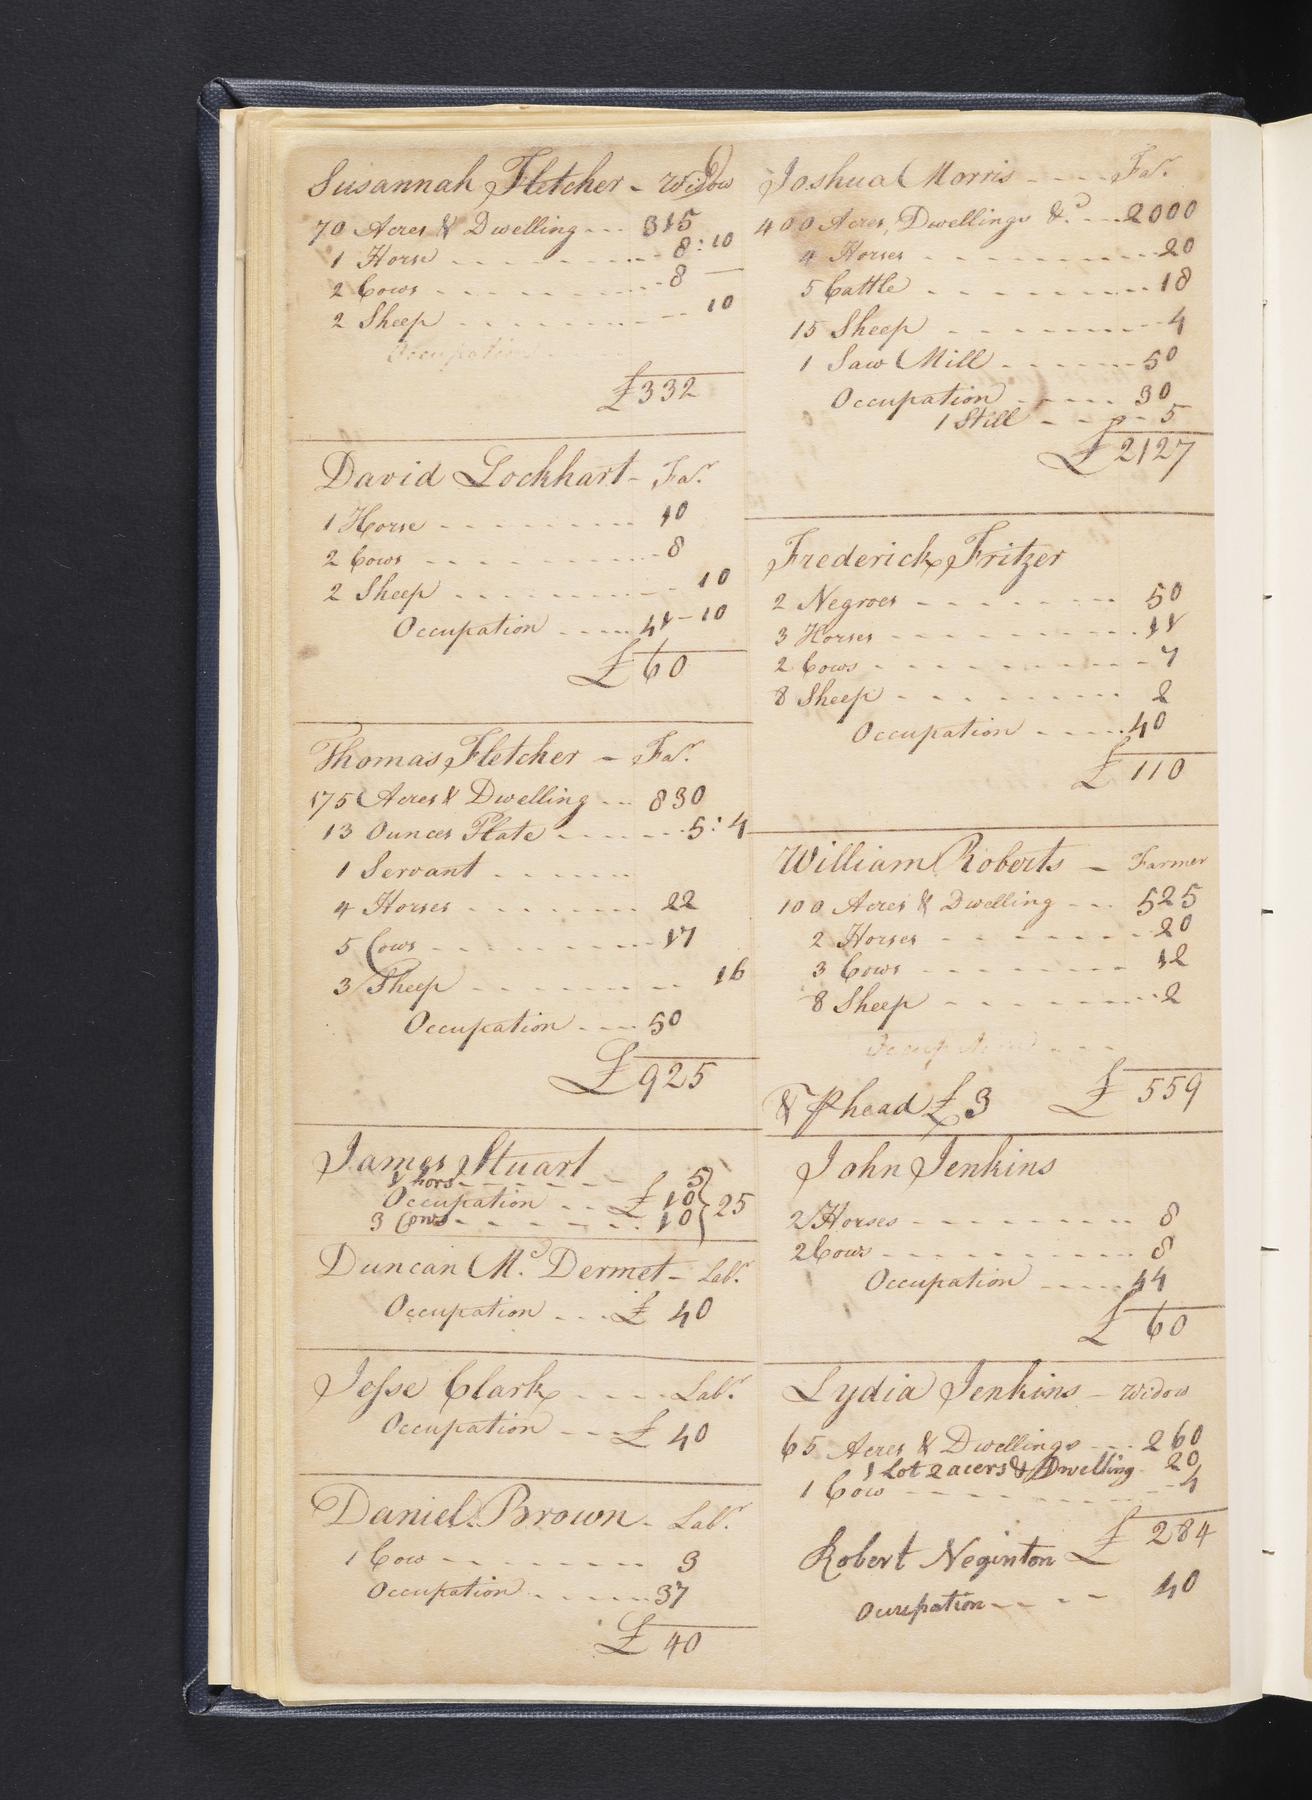 Susannah Fletcher - Widow
70 Acres & Dwelling --- 315
1 Horse - - - - - 8:10
2 Cows - - - - - 8 —
2 Sheep - - - - - 10
Occupation
£332
David Lockhart - Far.
1 Horse - - - - - 10
2 Cows - - - - - 8
2 Sheep - - - - - 10
Occupation - - - - 41-10
£60
Thomas Fletcher - Far.
175 Acres & Dwelling --- 830
13 Ounces Plate - - - - 5:4
1 Servant - - - - -
4 Horses - - - - - 22
5 Cows - - - - - 17
3 Sheep - - - - - 16
Occupation - - - - 50
£925
James Stuart
1 hors - - - - - 5
Occupation - - - £10 } 25
3 Cows - - - - - 10
Duncan Mc. Dermet - Labr.
Occupation - - - £ 40
Jesse Clark - - - - Labr.
Occupation - - - £ 40
Daniel Brown - Labr.
1 Cow - - - - - 3
Occupation - - - - 37
£ 40
Joshua Morris - - - - Far.
400 Acres, Dwellings &c. --- 2000
4 Horses - - - - - 20
5 Cattle - - - - - 18
15 Sheep - - - - - 4
1 Saw Mill - - - - - 50
Occupation - - - - 30
1 Still - - - - 5
£2127
Frederick Fritzer
2 Negroes - - - - - 50
3 Horses - - - - - 11
2 Cows - - - - - 7
8 Sheep - - - - - 2
Occupation - - - - 40
£ 110
William Roberts - Farmer
100 Acres & Dwelling --- 525
2 Horses - - - - - 20
3 Cows - - - - - 12
8 Sheep - - - - - 2
Occupation - - -
& P head £3 £ 559
John Jenkins
2 Horses - - - - - 8
2 Cows - - - - - 8
Occupation - - - - 44
£ 60
Lydia Jenkins - Widow
65 Acres & Dwellings --- 260
1 Lot 2 acers & Dwelling 20
1 Cow - - - - - 4
£ 284
Robert Neginton
Ocupation - - - 40